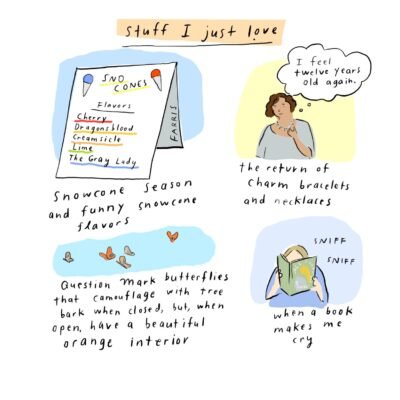 stuff I just love
SNO
CONES
Flavors
Cherry
Dragonsblood
Creamsicle
Lime
The Gray Lady
FARRIS
Snowcone season
and funny snowcone
flavors
I feel
twelve years
old again.
the return of
charm bracelets
and necklaces
Question mark butterflies
that camouflage with tree
bark when closed, but, when
open, have a beautiful
orange interior
SNIFF
SNIFF
when a book
makes me
cry